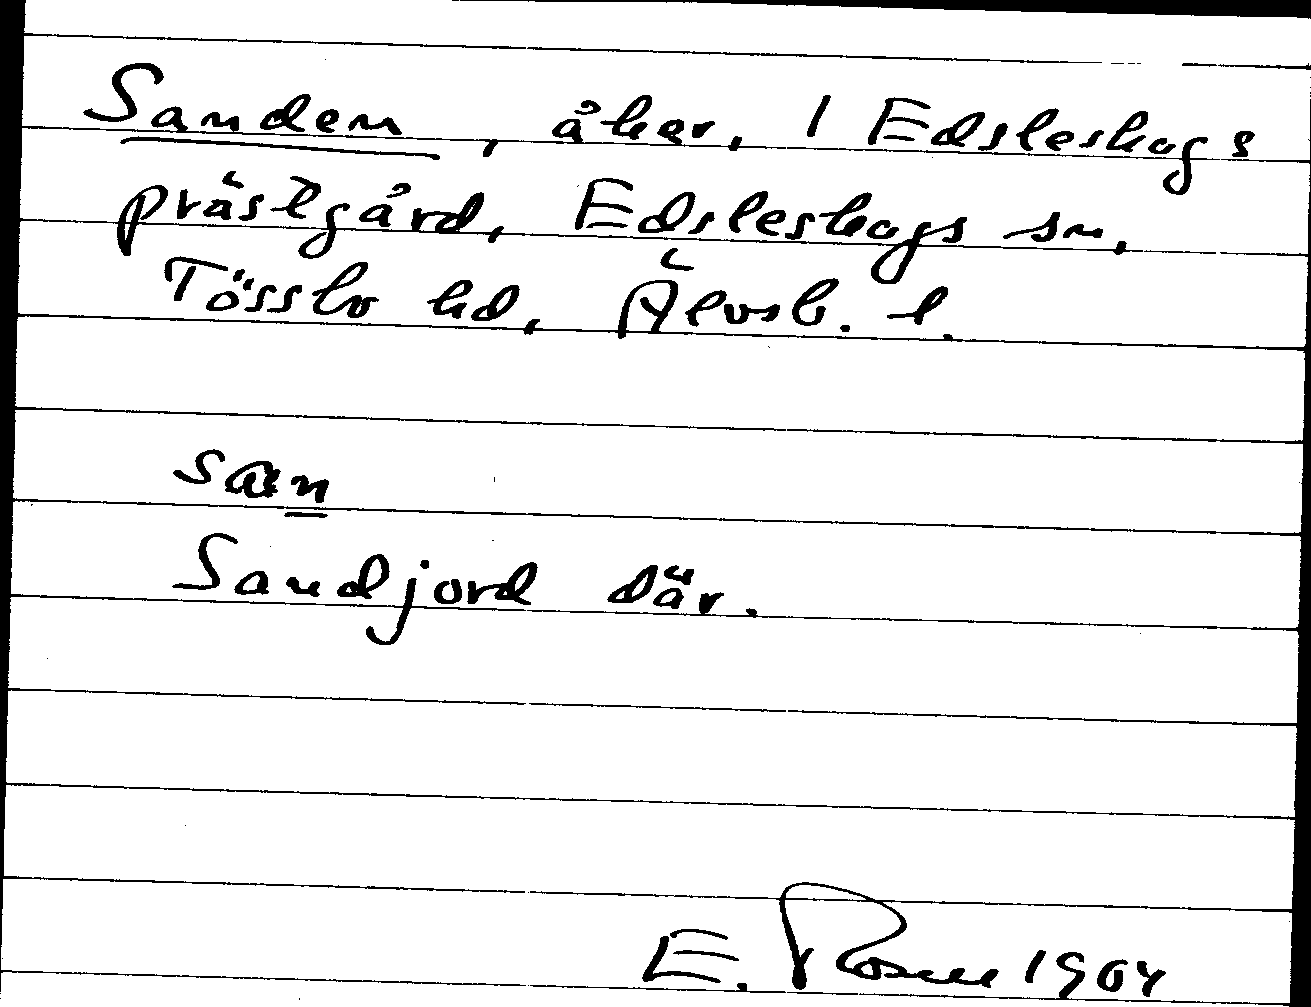 Sanden, åker, 1 Edsleskogs
prästgård, Edsleskogs sn,
Tössbo hd, Älvsb. l.
san
Sandjord där.
E. Rosell 1964